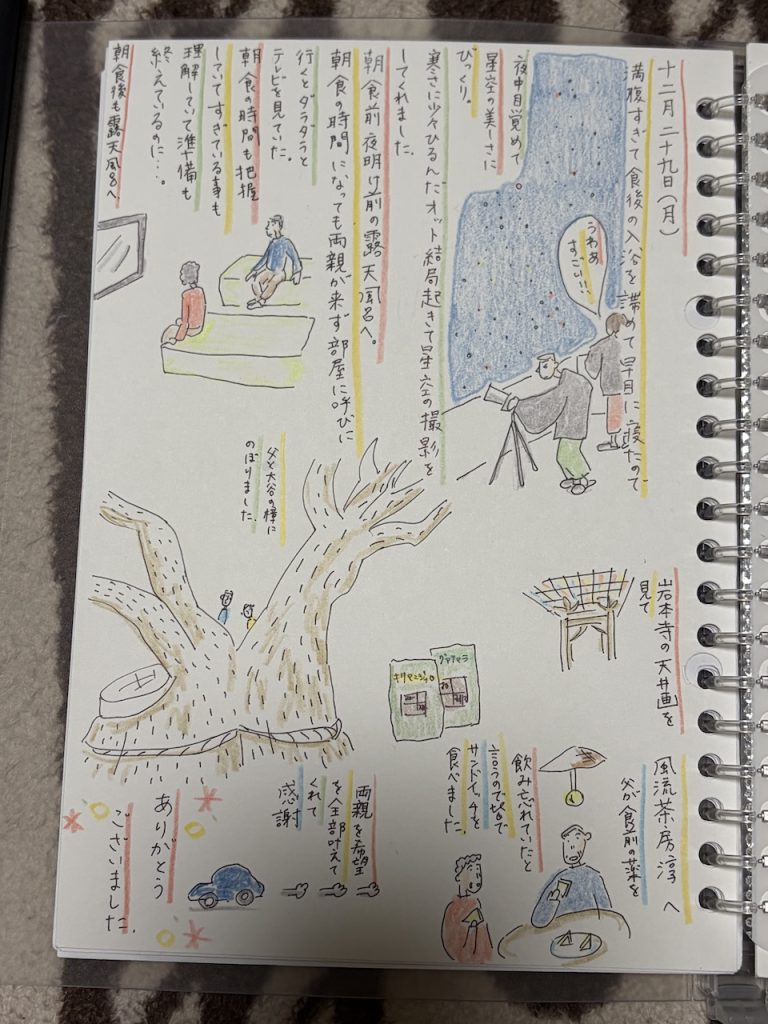 十二月二十九日(月)
満腹すぎて食後の入浴を諦めて早目に寝たので
夜中目覚めて
星空の美しさに
びっくり。
うわぁ
すごい!!
寒さに少々ひるんだオット結局起きて星空の撮影を
してくれました。
朝食前夜明け前の露天風呂へ。
朝食の時間になっても両親が来ず部屋に呼びに
行くとダラダラと
テレビを見ていた。
朝食の時間も把握
していてすぎている事も
理解していて準備も
終えているのに…。
朝食後も露天風呂へ
父と大谷の樟に
のぼりました。
岩本寺の天井画を
見て
グァテマラ
キリマンジャロ
風流茶房淳へ
父が食前の薬を
飲み忘れていたと
言うので皆で
サンドイッチを
食べました。
両親を希望
を全部叶えて
くれて
感謝
ありがとう
ございました。